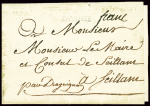 franc
A Monsieur
Monsieur Le Maire
et Consul de Seillans
par Draguignan
a Seillans